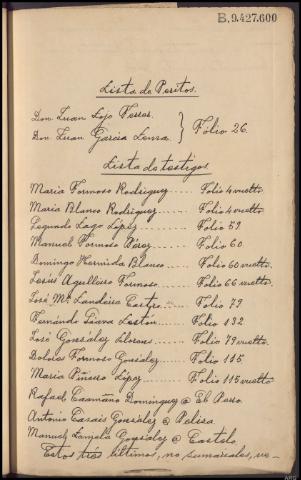 B,9.427.600
Lista de Peritos.
Don Juan Lojo Ferros.
Don Juan Garcia Lema.
} Fólio 26.
Lista de testigos
Maria Formoso Rodriguez...... Folio 4 vuelto.
Maria Blanco Rodriguez...... Folio 4 vuelto
Lago López...... Folio 52
Manuel Formoso Pérez...... Folio 60
Domingo Hermida Blanco...... Folio 60 vuelto.
Jesús Agulleiro Formoso...... Folio 66 vuelto.
José Mª Landeira Castro...... Folio 79
Fernándo Lestón...... Folio 132
José González...... Folio 79 vuelto.
Dolores Formoso González...... Folio 115
Maria Piñeiro López...... Folio 115 vuelto
Rafael Caamaño Dominguez @ El
Antonio Casais González @
Manuel Zamala González @ Castelo
Estos trés últimos, no sumariales, ve-